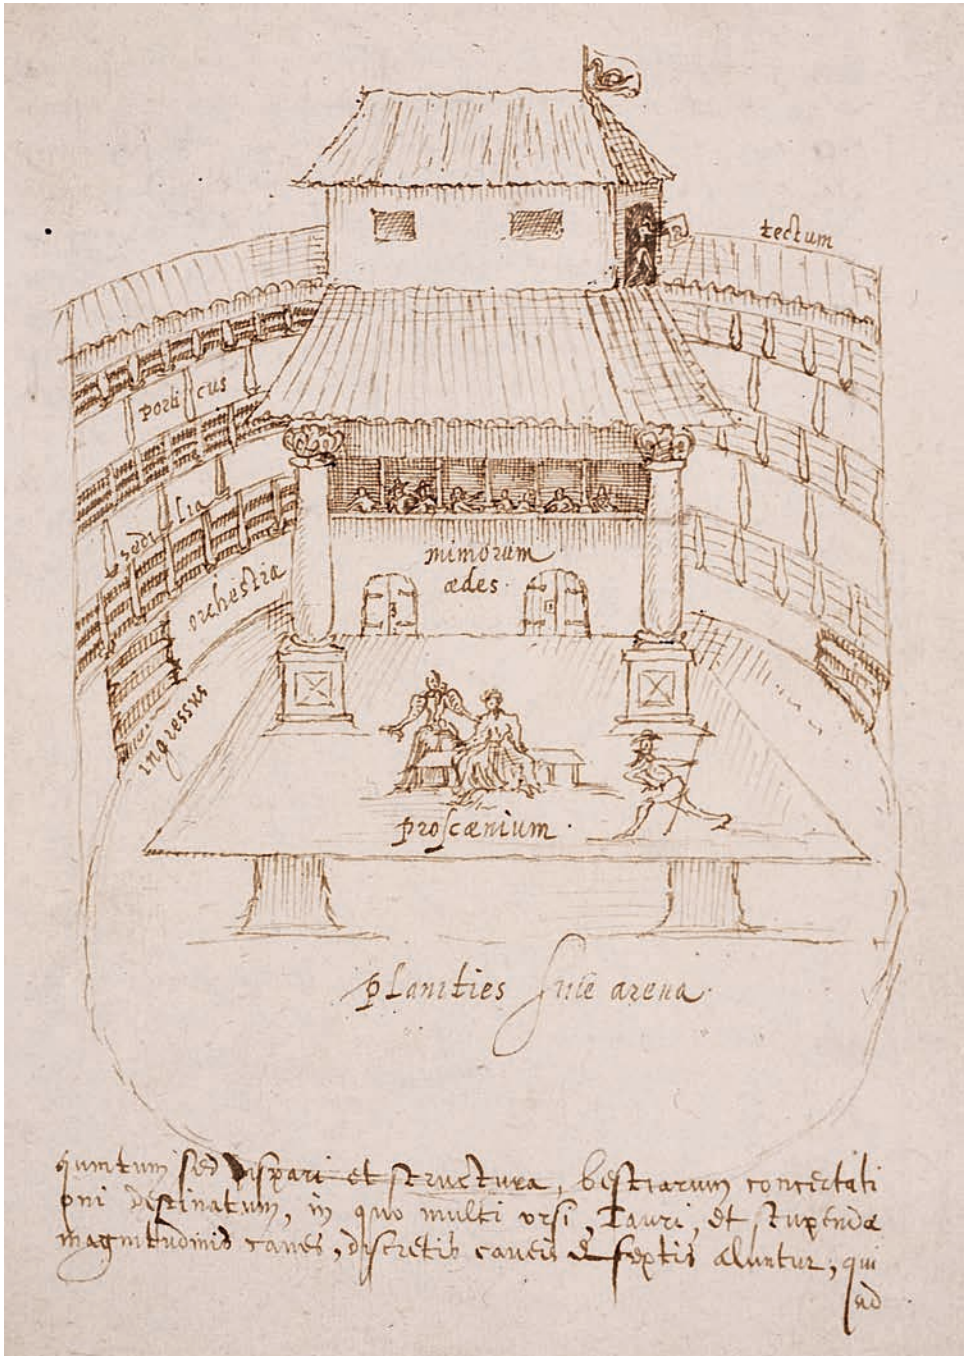 tectum
porticus
sedilia
orchestra
ingressus
mimorum
ædes.
proscænium.
planities sive arena.
quintum, sed dispari et structura, bestiarum concertati
oni destinatum, in quo multi ursi, Tauri, et stupendæ
magnitudinis canes, discretis caveis & septis aluntur, qui
ad